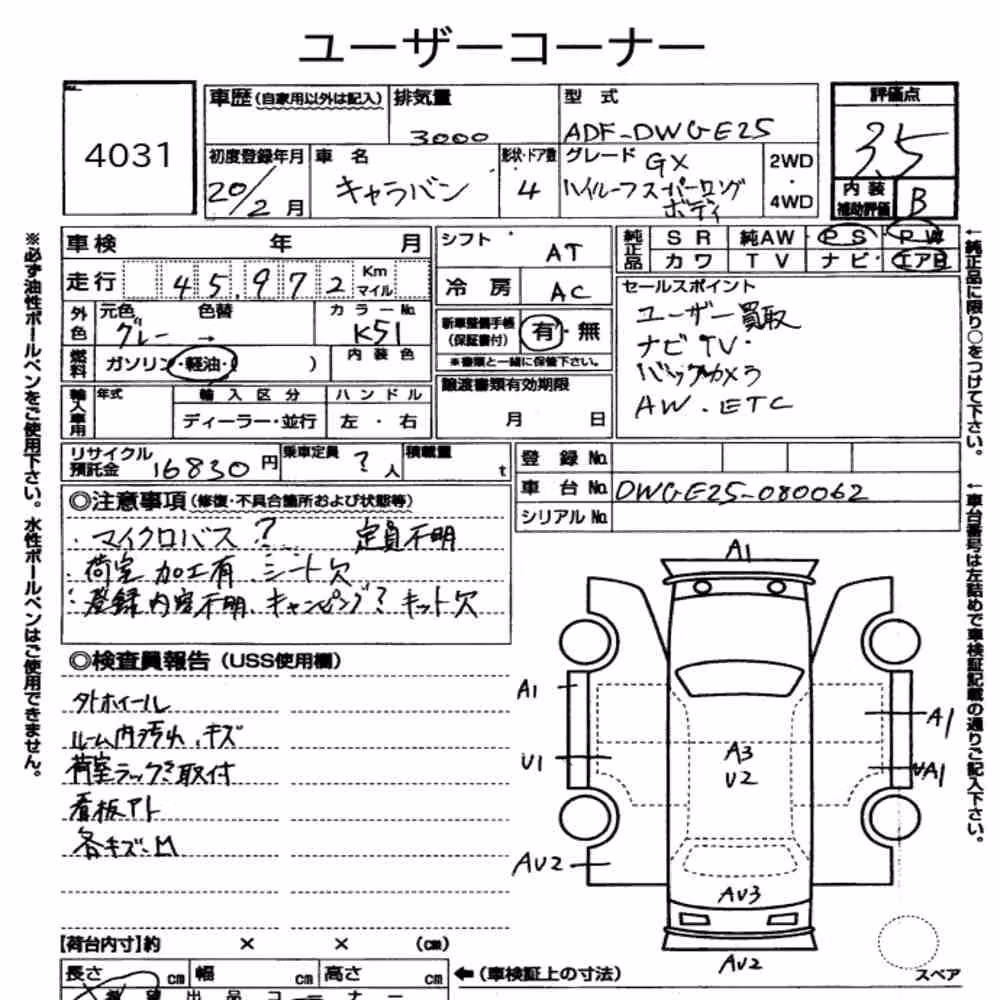 ユーザーコーナー
4031
車歴(自家用以外は記入)
排気量
3000
型式
ADF-DWGE25
評価点
3.5
初度登録年月
20/2月
車名
キャラバン
形状・ドア数
4
グレード GX
ハイルーフスーパーロング
ボディ
2WD
・
4WD
内装
補助評価
B
車検 年 月
走行 45,972 Km
マイル
シフト AT
冷房 AC
純正品
SR 純AW PS PW
カワ TV ナビ エアB
外色
元色 色替
グレー →
カラーNo.
K51
内装色
燃料
ガソリン・軽油・( )
新車整備手帳
(保証書付)
有・無
※書類と一緒に保管下さい。
セールスポイント
ユーザー買取
ナビTV・
バックカメラ
AW.ETC
輸入車用
年式
輸入区分
ディーラー・並行
ハンドル
左・右
譲渡書類有効期限
月 日
リサイクル
預託金 16830円
乗車定員 ? 人
積載量 t
登録No.
車台No. DWGE25-080062
シリアルNo.
◎注意事項(修復・不具合箇所および状態等)
・マイクロバス? 定員不明
・荷室加工有 シート欠
・登録内容不明、キャンピング?キット欠
◎検査員報告(USS使用欄)
外ホイール
ルーム内汚れ、キズ
荷室ラック等取付
看板アト
各キズ.凹
A1
A1
U1
AU2
A3
U2
A1
UA1
AU3
AU2
スペア
【荷台内寸】約 × × (cm)
長さ cm 幅 cm 高さ cm
←(車検証上の寸法)
希望出品コーナー
※必ず油性ボールペンをご使用下さい。水性ボールペンはご使用できません。
←純正品に限り○をつけて下さい。
←車台番号は左詰めで車検証記載の通りご記入下さい。